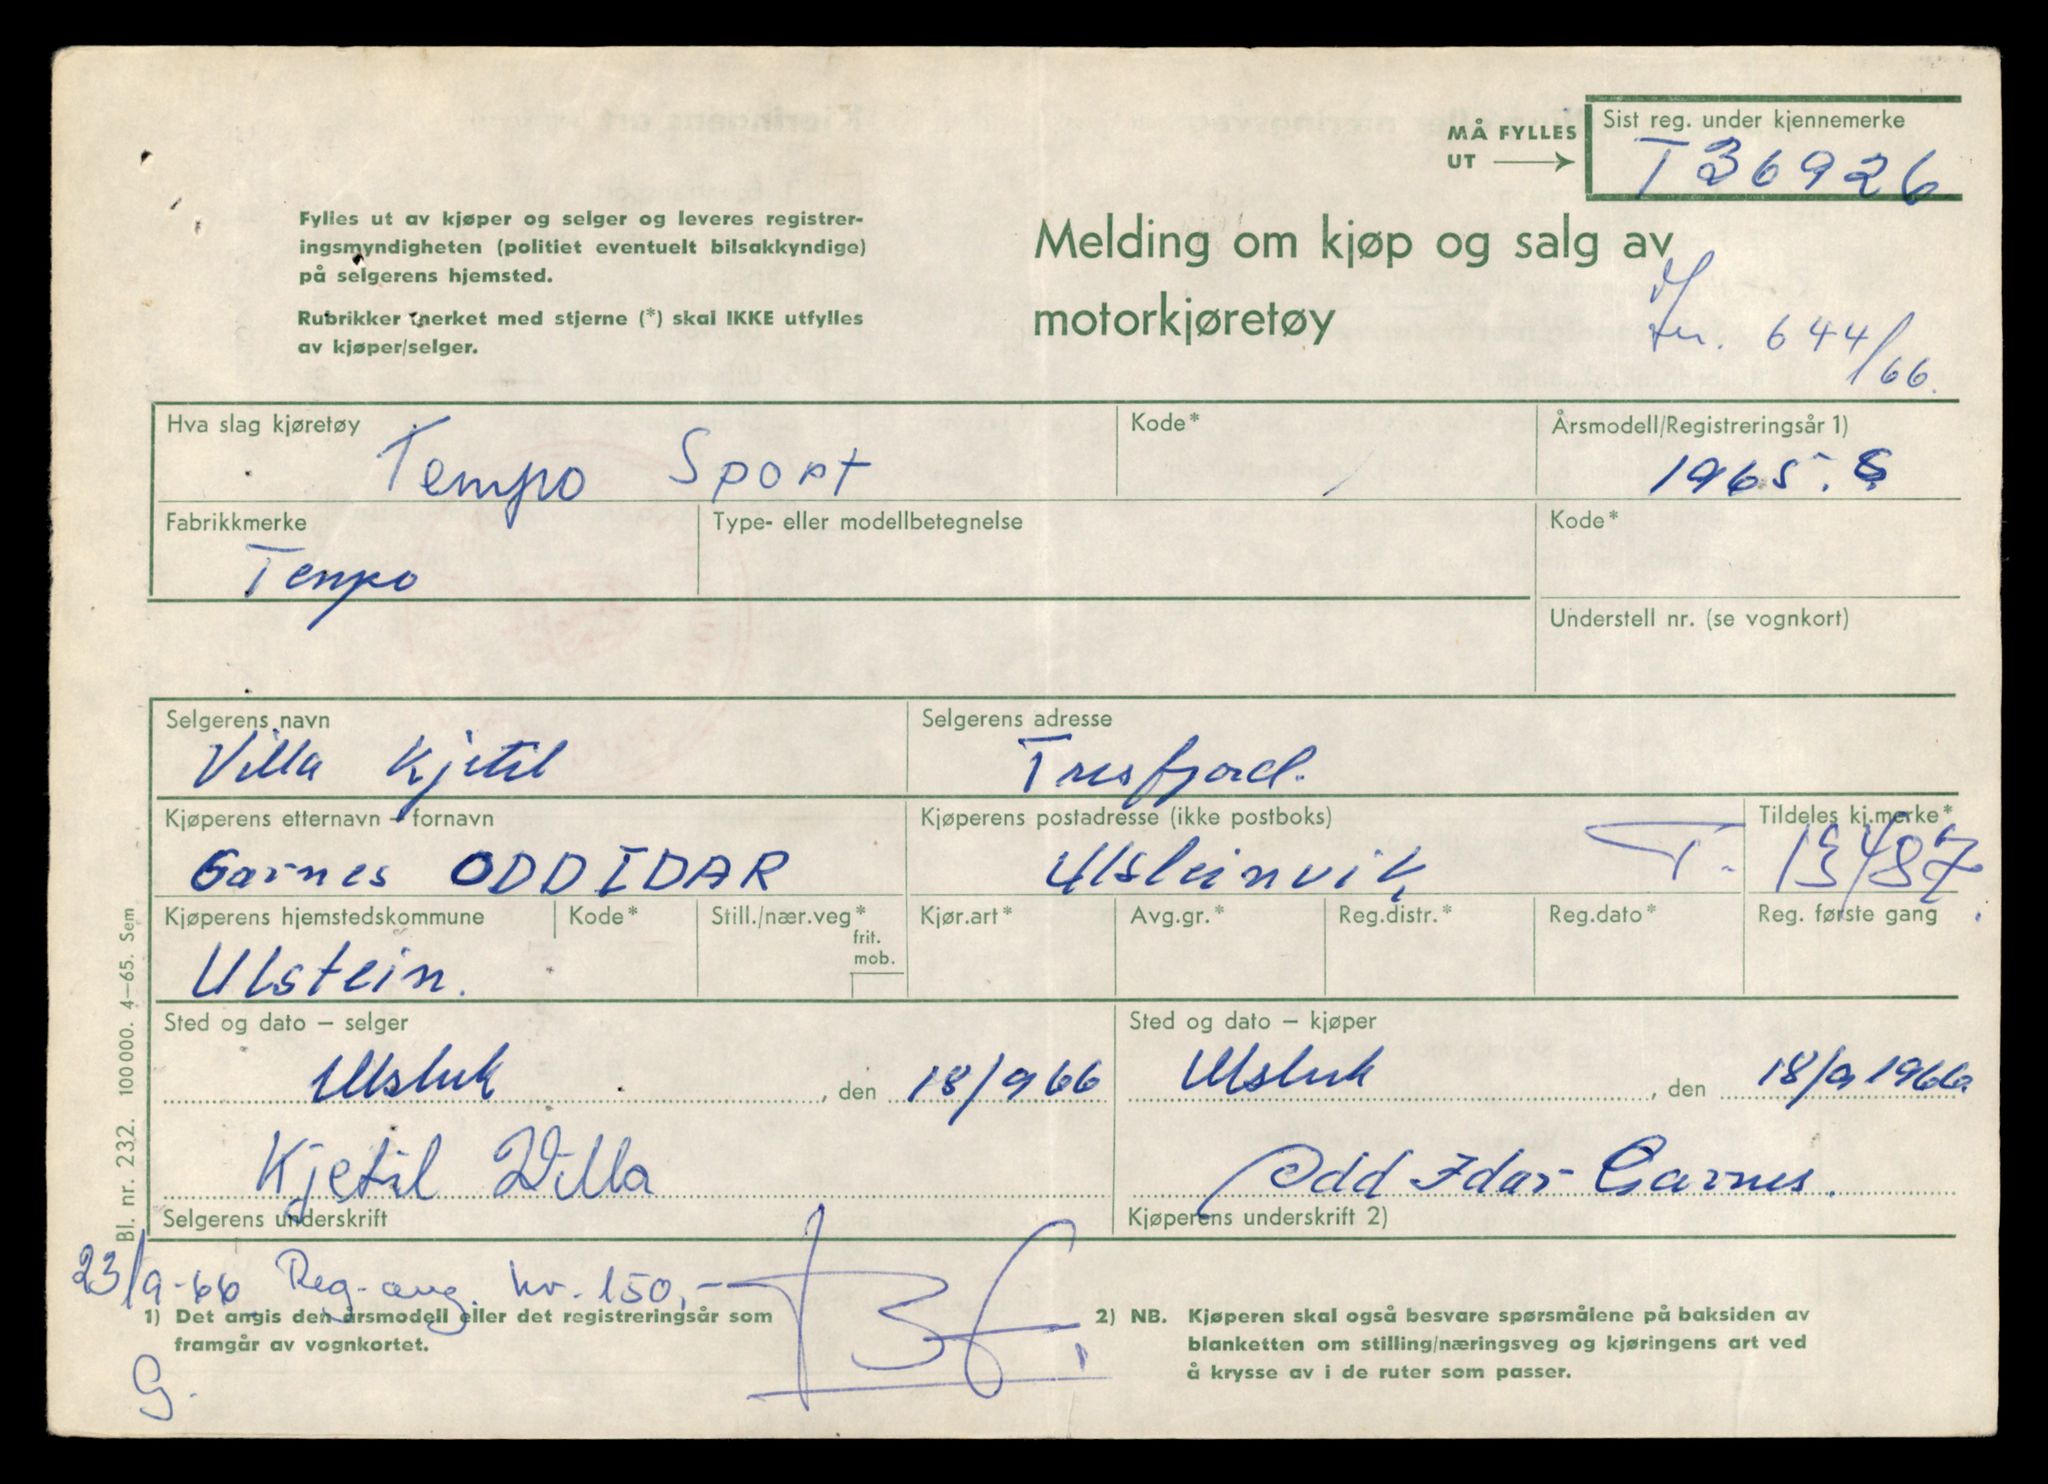 MÅ FYLLES
UT
Sist reg. under kjennemerke
T 36926
Fylles ut av kjøper og selger og leveres registrer-
ingsmyndigheten (politiet eventuelt bilsakkyndige)
på selgerens hjemsted.
Rubrikker merket med stjerne (*) skal IKKE utfylles
av kjøper/selger.
Melding om kjøp og salg av
motorkjøretøy
644/66.
Hva slag kjøretøy
Tempo Sport
Kode*
Årsmodell/Registreringsår 1)
1965.
Fabrikkmerke
Tempo
Type- eller modellbetegnelse
Kode*
Understell nr. (se vognkort)
Selgerens navn
Villa Kjetil
Selgerens adresse
Tresfjord.
Kjøperens etternavn - fornavn
Garnes ODD IDAR
Kjøperens postadresse (ikke postboks)
Ulsteinvik
Tildeles kj.merke*
T. 13487
Kjøperens hjemstedskommune
Ulstein.
Kode*
Still./nær.veg*
frit.
mob.
Kjør.art*
Avg.gr.*
Reg.distr.*
Reg.dato*
Reg. første gang
Sted og dato – selger
, den 18/9 66
Kjetil Villa
Selgerens underskrift
Sted og dato – kjøper
, den 18/9 1966
Odd Idar Garnes.
Kjøperens underskrift 2)
Bl. nr. 232. 100 000. 4–65. Sem
23/9-66 Reg-avg. kr. 150,-
1) Det angis den årsmodell eller det registreringsår som
framgår av vognkortet.
G.
2) NB. Kjøperen skal også besvare spørsmålene på baksiden av
blanketten om stilling/næringsveg og kjøringens art ved
å krysse av i de ruter som passer.